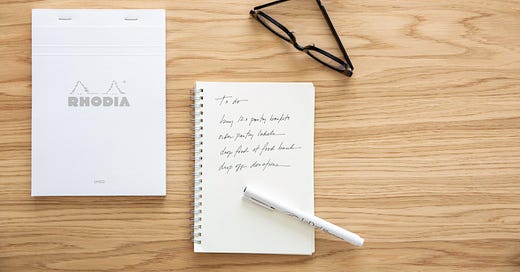 RHODIA
To do
buy 120 pantry baskets
order pantry labels
drop food at food bank
drop off donations